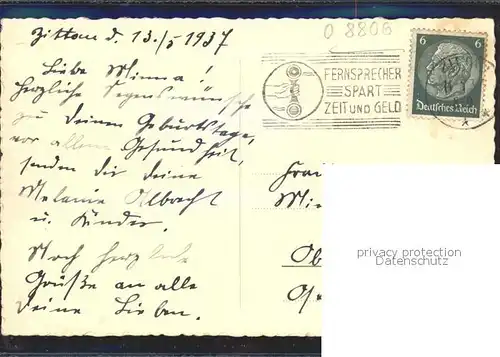 Zittau d. 13./5 1937
Liebe Minna!
Herzliche Segenswünsche
zu Deinem Geburtstage,
vor allem Gesundheit,
senden dir deine
Melanie Albrecht
u. Kinder.
Noch herzliche
Grüße an alle
deine Lieben.
O 8806
FERNSPRECHER
SPART
ZEIT UND GELD
6 6
Deutsches Reich
Frau
privacy protection
Datenschutz